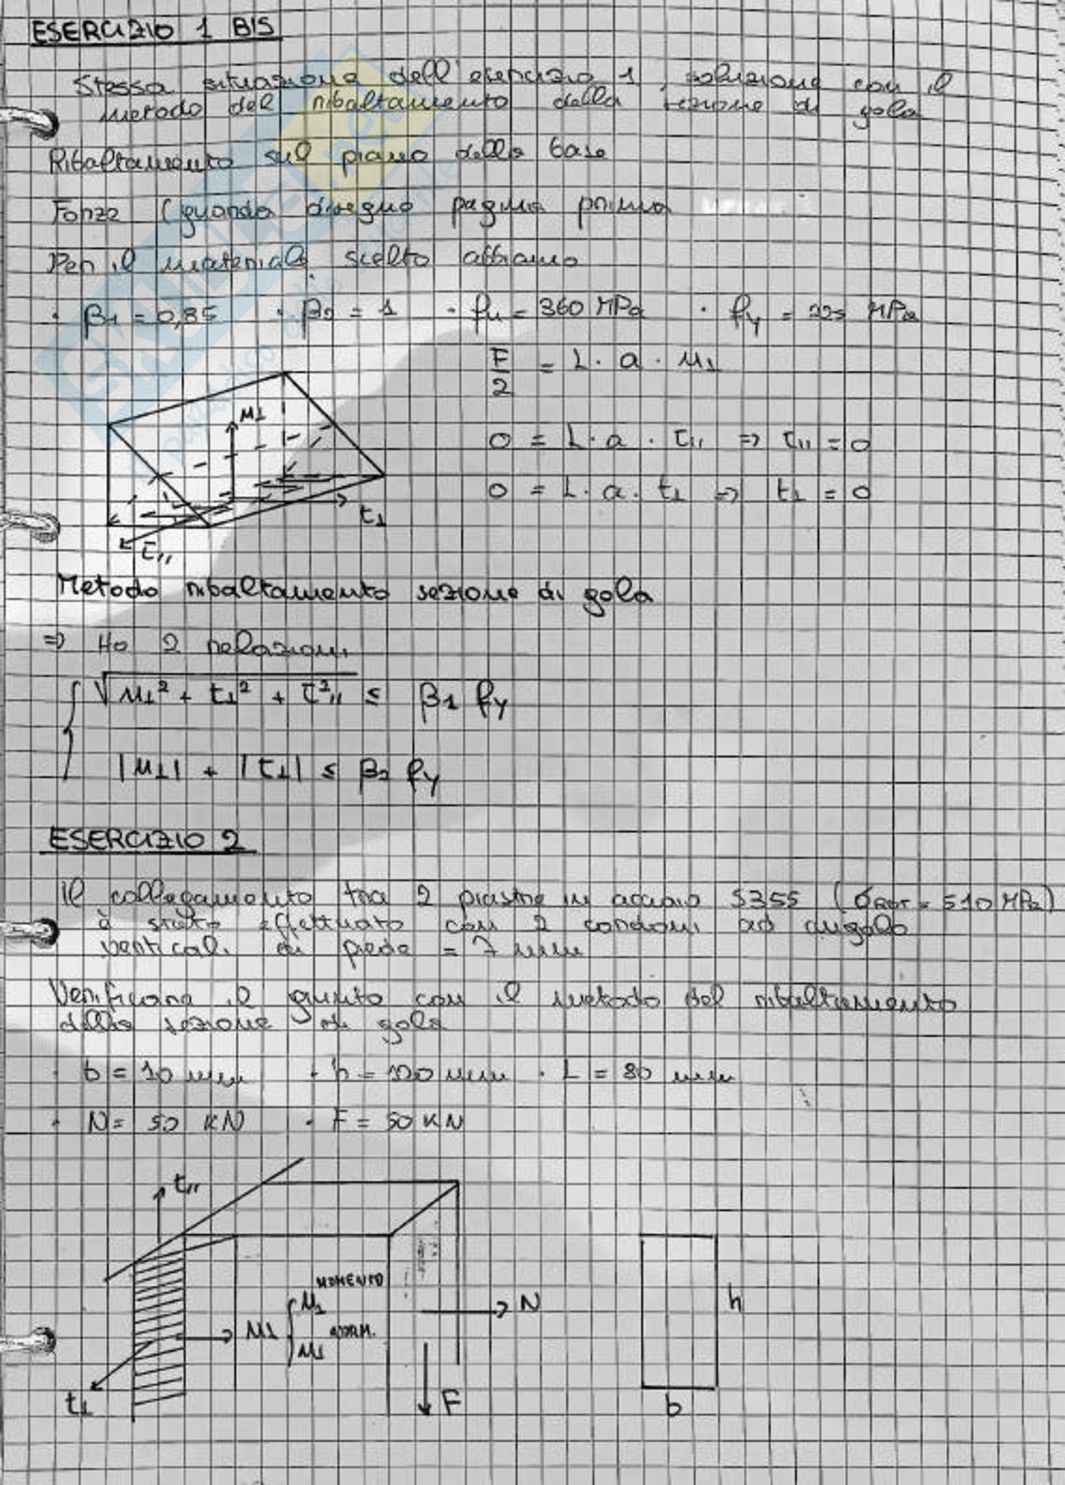 ESERCIZIO 1 BIS
Stessa situazione dell'esercizio 1, soluzione con il
metodo del ribaltamento della sezione di gola
Ribaltamento sul piano della base
Forze (guarda disegno pagina prima
Per il materiale scelto abbiamo
· β1 = 0,85 · β2 = 1 · fu = 360 MPa · fy = 225 MPa
F/2 = L · a · μ⊥
μ⊥
0 = L · a · τ// => τ// = 0
0 = L · a · t⊥ => t⊥ = 0
t⊥
τ//
Metodo ribaltamento sezione di gola
=> Ho 2 relazioni
√μ⊥² + t⊥² + τ²// ≤ β1 fy
|μ⊥| + |t⊥| ≤ β2 fy
ESERCIZIO 2
Il collegamento tra 2 piastre in acciaio S355 ( = 510 MPa)
è stato effettuato con 2 cordoni ad angolo
verticali di piede = 7 mm
Verificare il giunto con il metodo del ribaltamento
della sezione di gola
· b = 10 mm · h = 120 mm · L = 80 mm
· N = 50 KN · F = 50 KN
t//
MOMENTO
μ⊥
N
h
μ⊥
μ⊥
t⊥
F
b